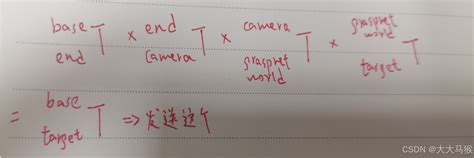 base end T × end camera T × camera graspref world T × graspref world target T
= base target T ⇒ 发送这个
CSDN @大大马猴